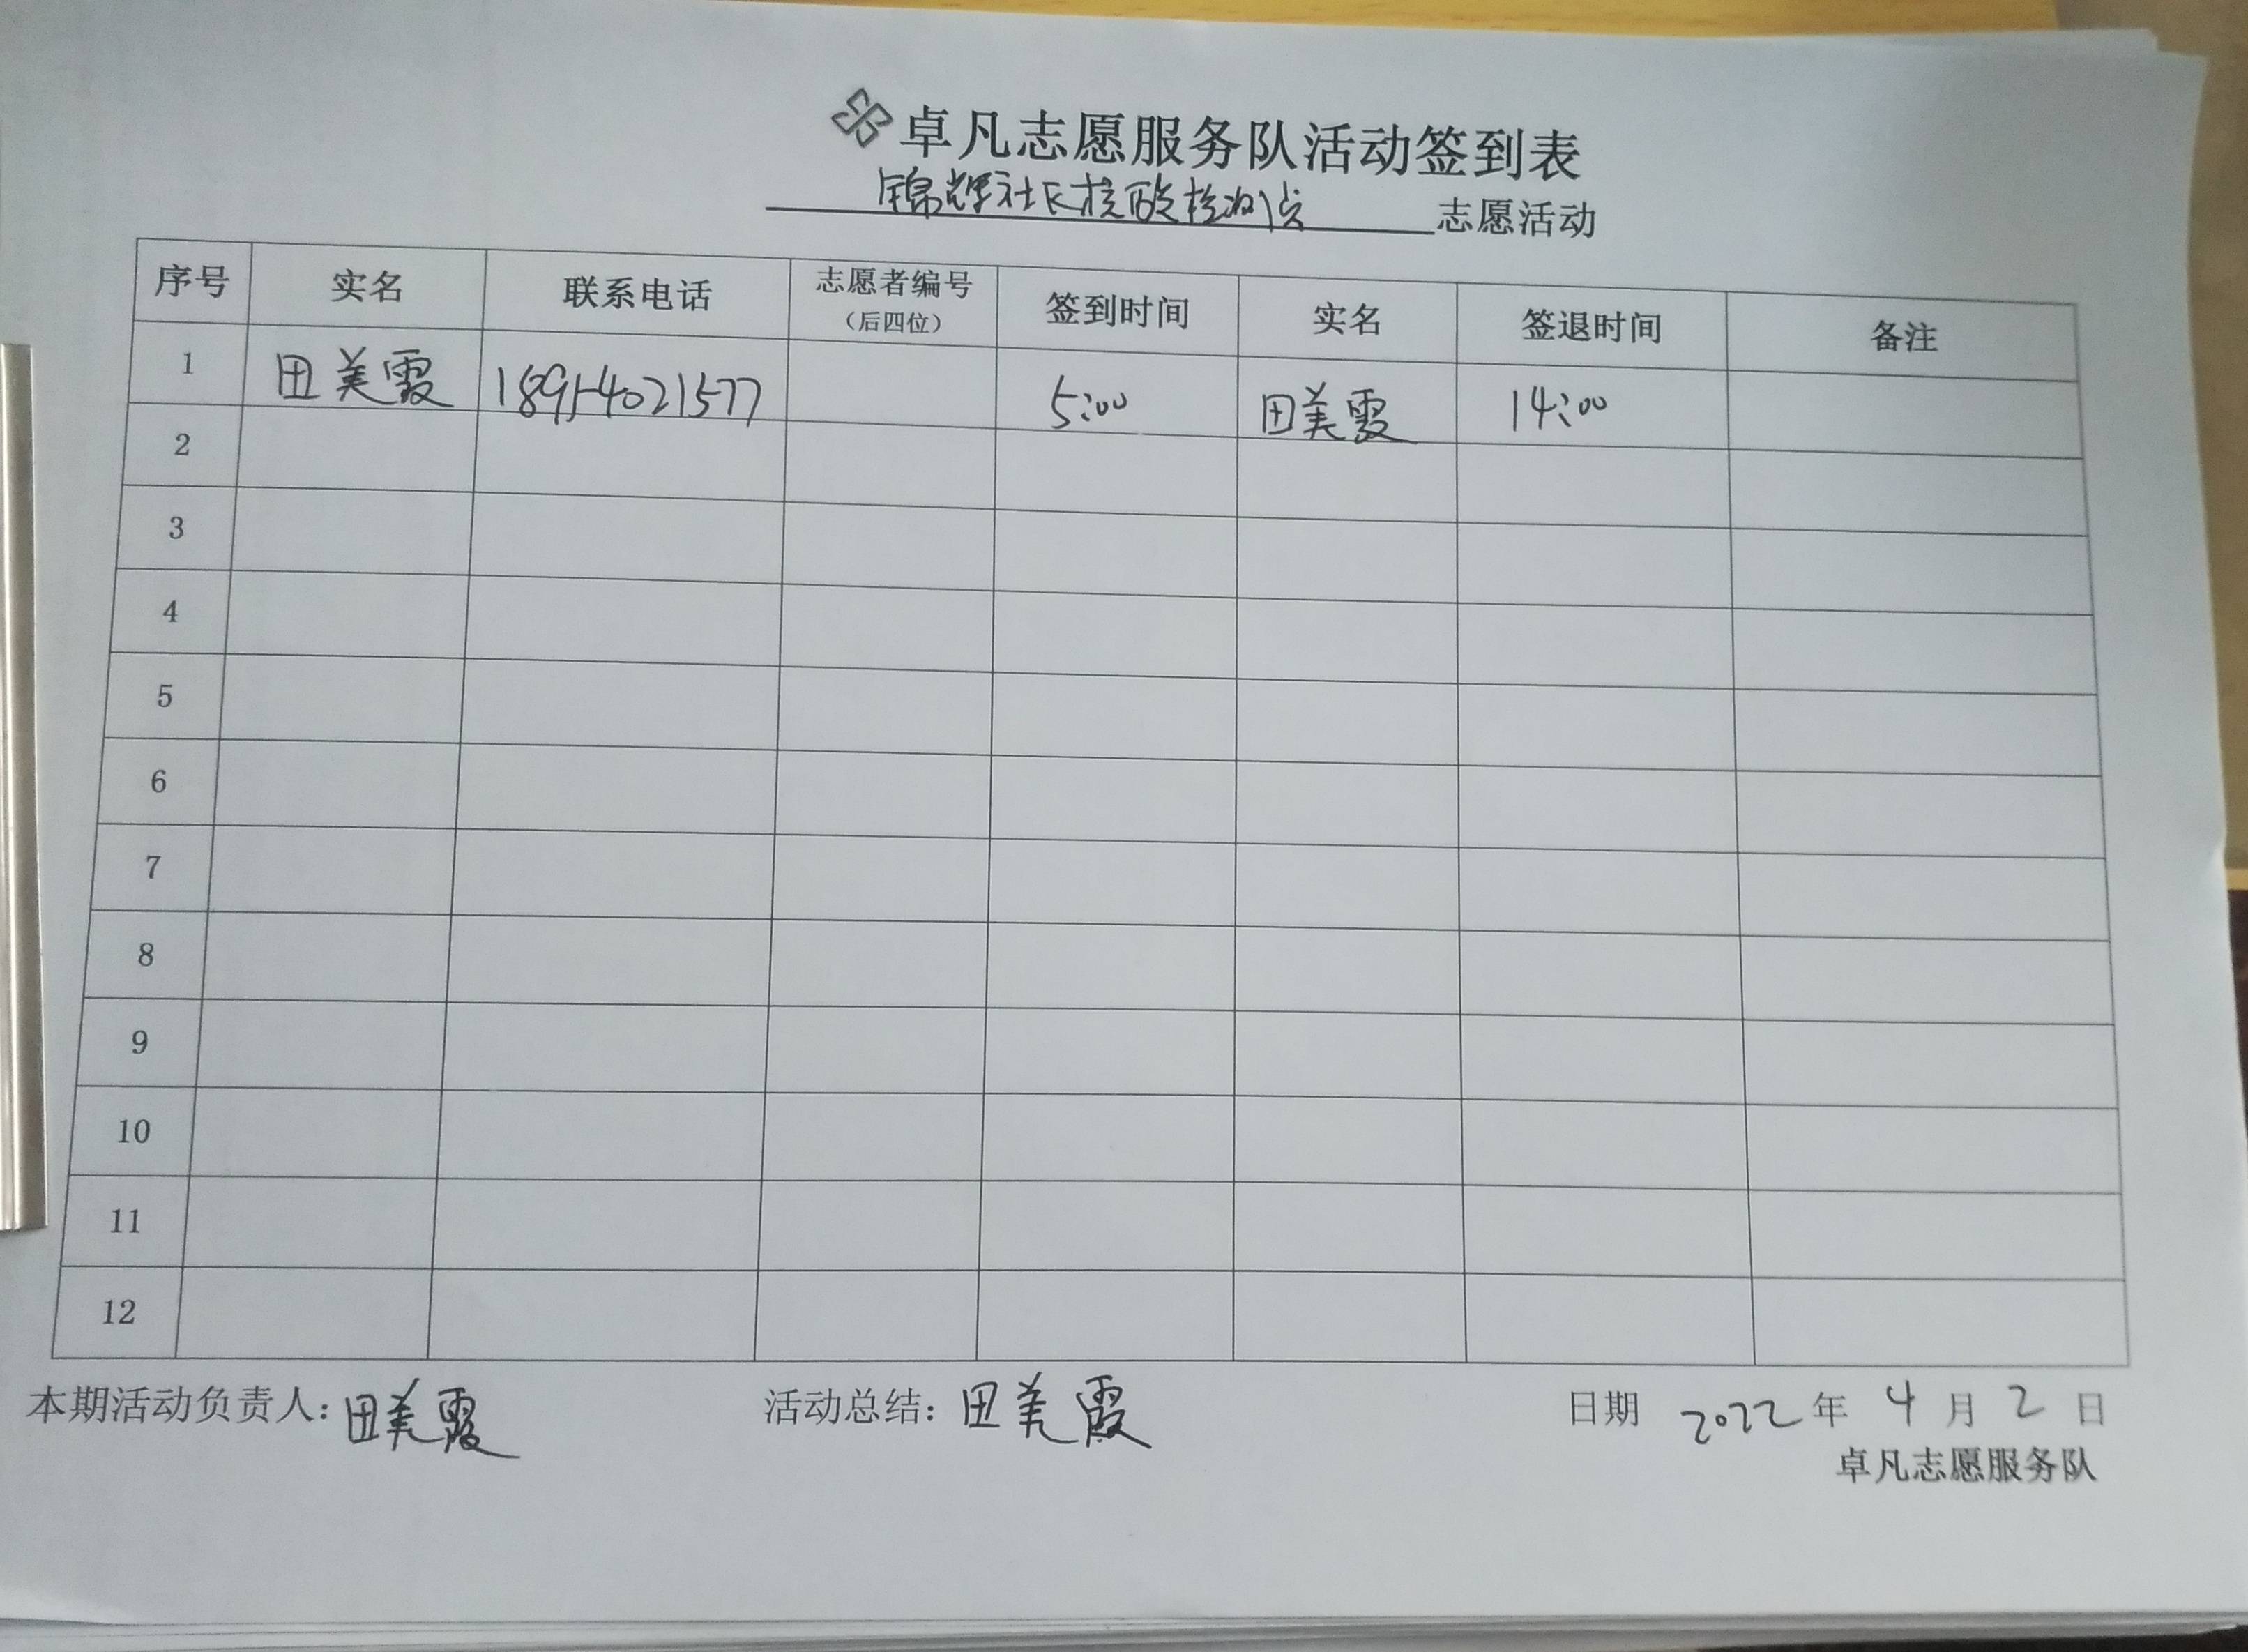 卓凡志愿服务队活动签到表
锦辉社区核酸检测点 志愿活动
序号 实名 联系电话 志愿者编号（后四位） 签到时间 实名 签退时间 备注
1 田美霞 18954021577 5:00 田美霞 14:00
2
3
4
5
6
7
8
9
10
11
12
本期活动负责人：田美霞 活动总结：田美霞 日期 2022 年 4 月 2 日
卓凡志愿服务队